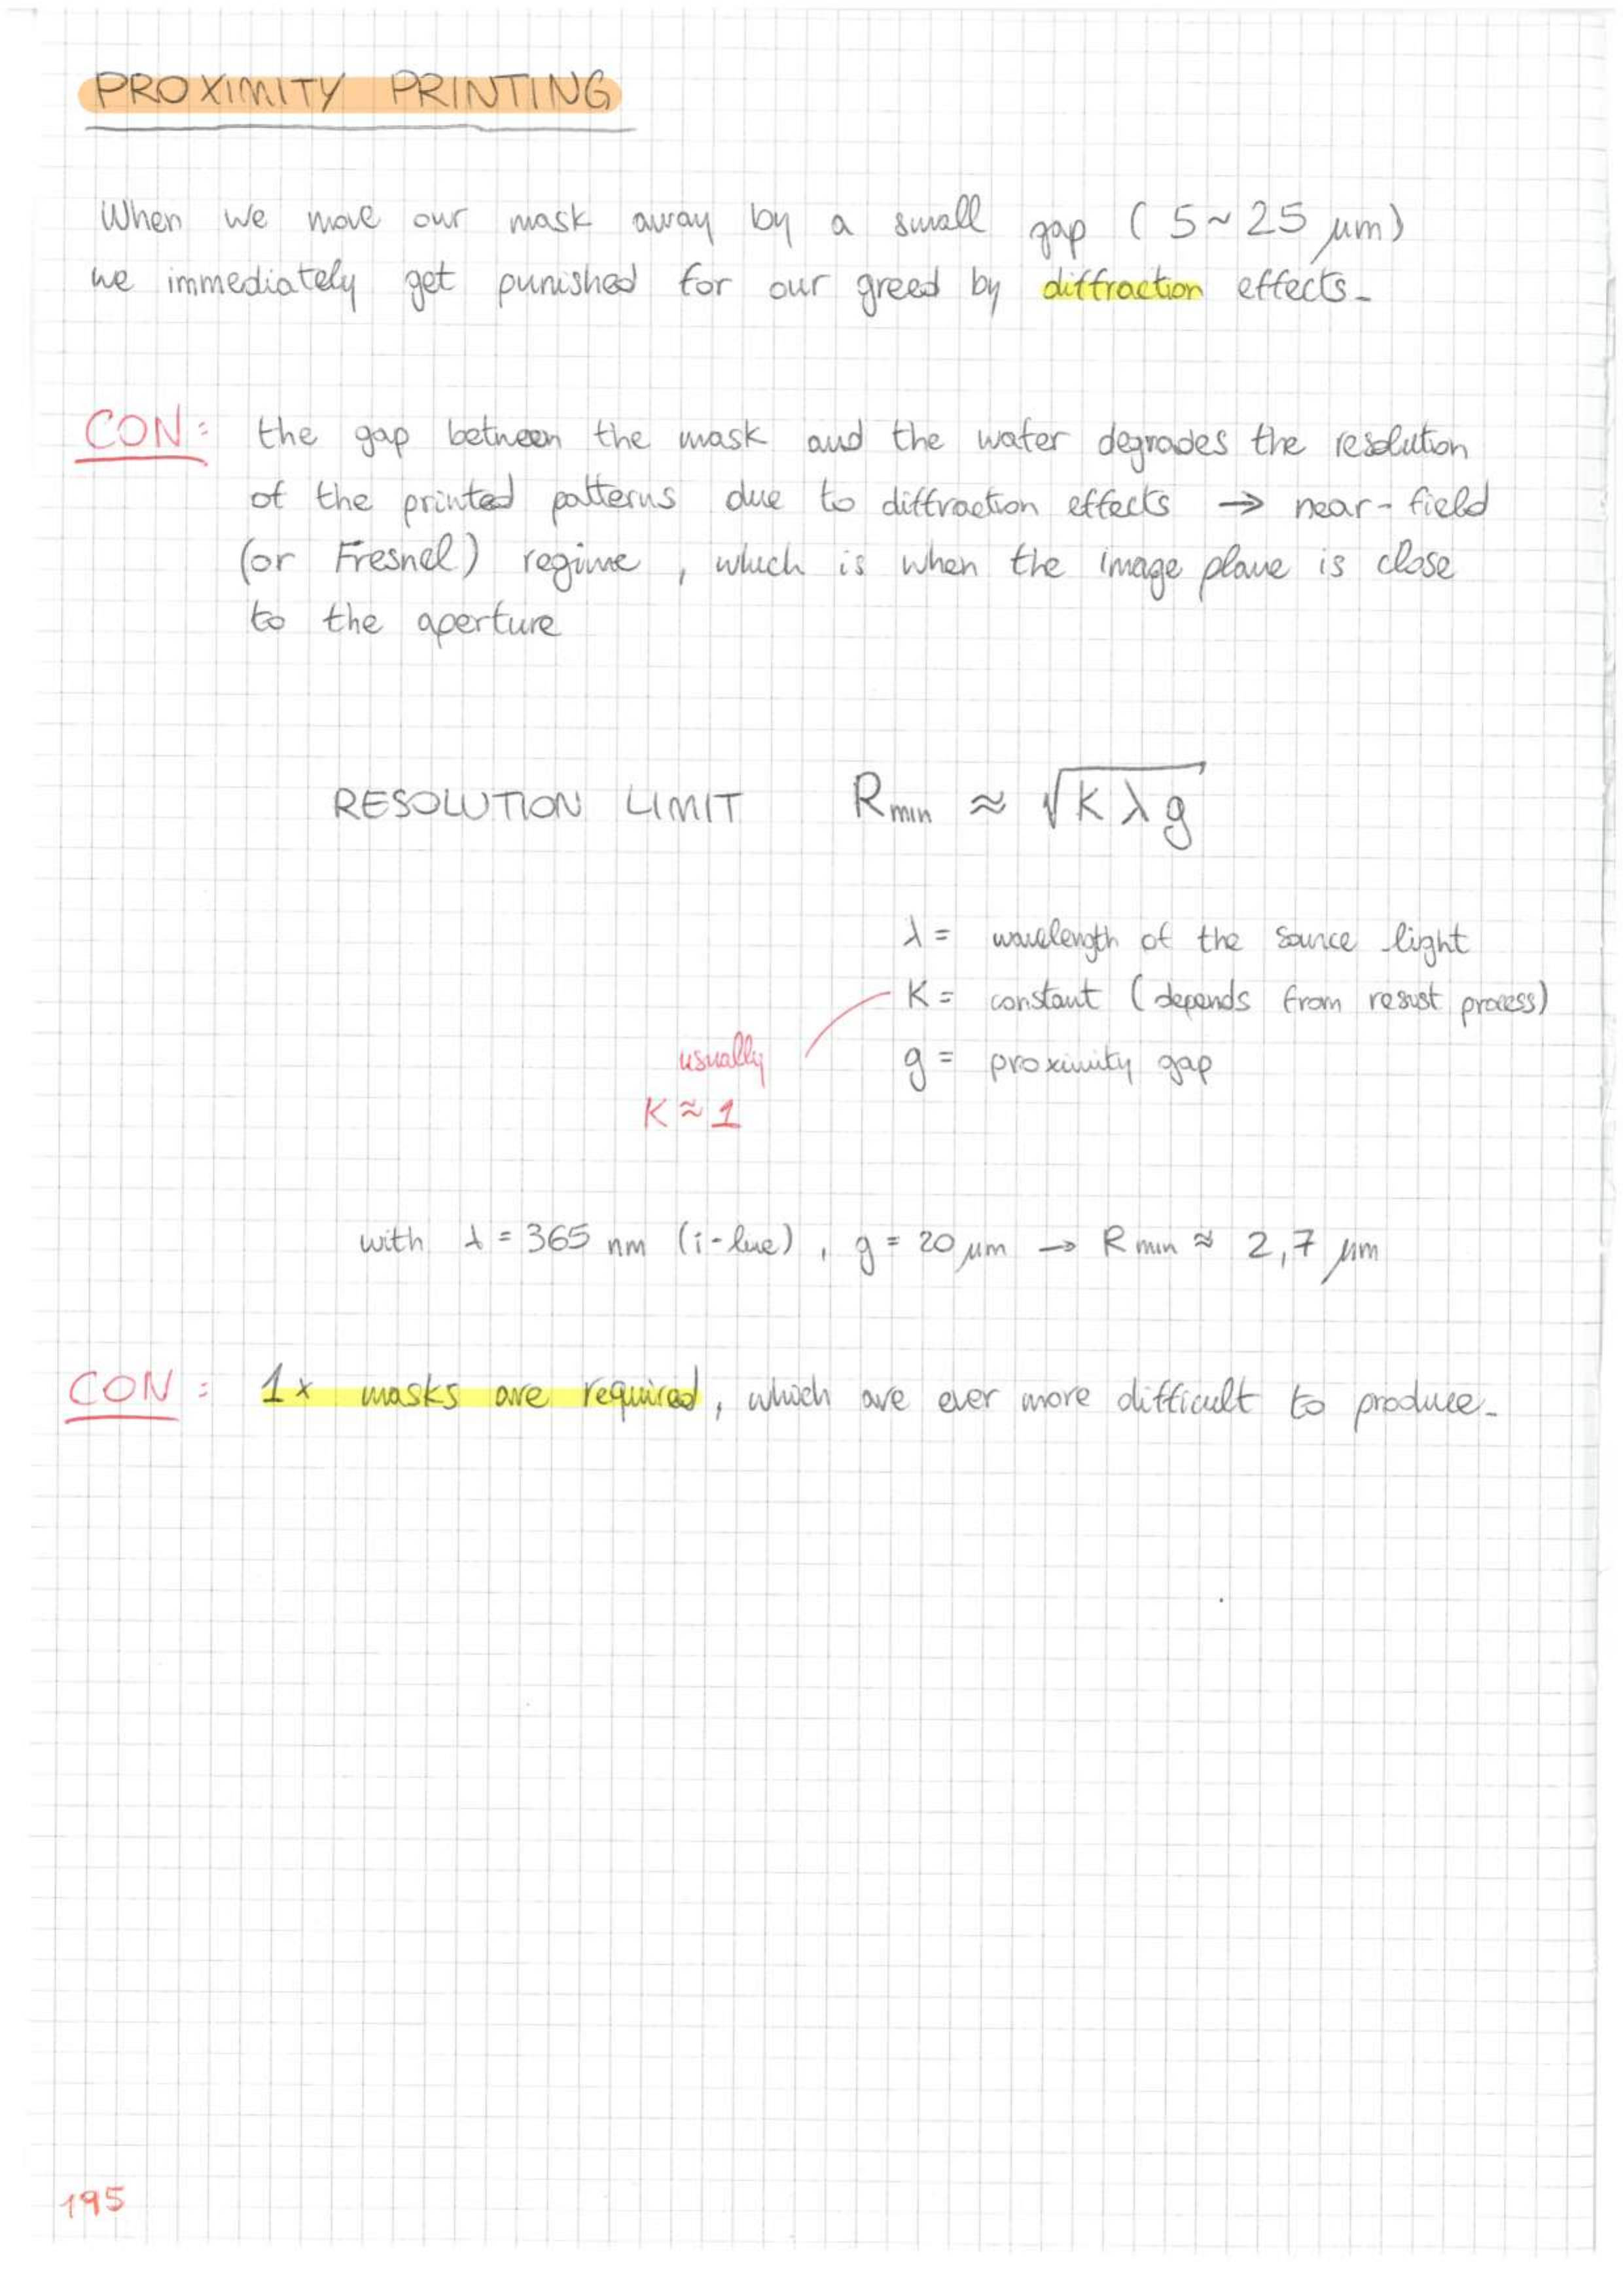 PROXIMITY PRINTING
When we move our mask away by a small gap ( 5 ~ 25 μm)
we immediately get punished for our greed by diffraction effects.
CON: the gap between the mask and the wafer degrades the resolution
of the printed patterns due to diffraction effects → near-field
(or Fresnel) regime, which is when the image plane is close
to the aperture
RESOLUTION LIMIT Rmin ≈ √(K λ g)
λ = wavelength of the source light
K = constant (depends from resist process)
g = proximity gap
usually
K ≈ 1
with λ = 365 nm (i-line), g = 20 μm → Rmin ≈ 2,7 μm
CON: 1x masks are required, which are ever more difficult to produce.
195